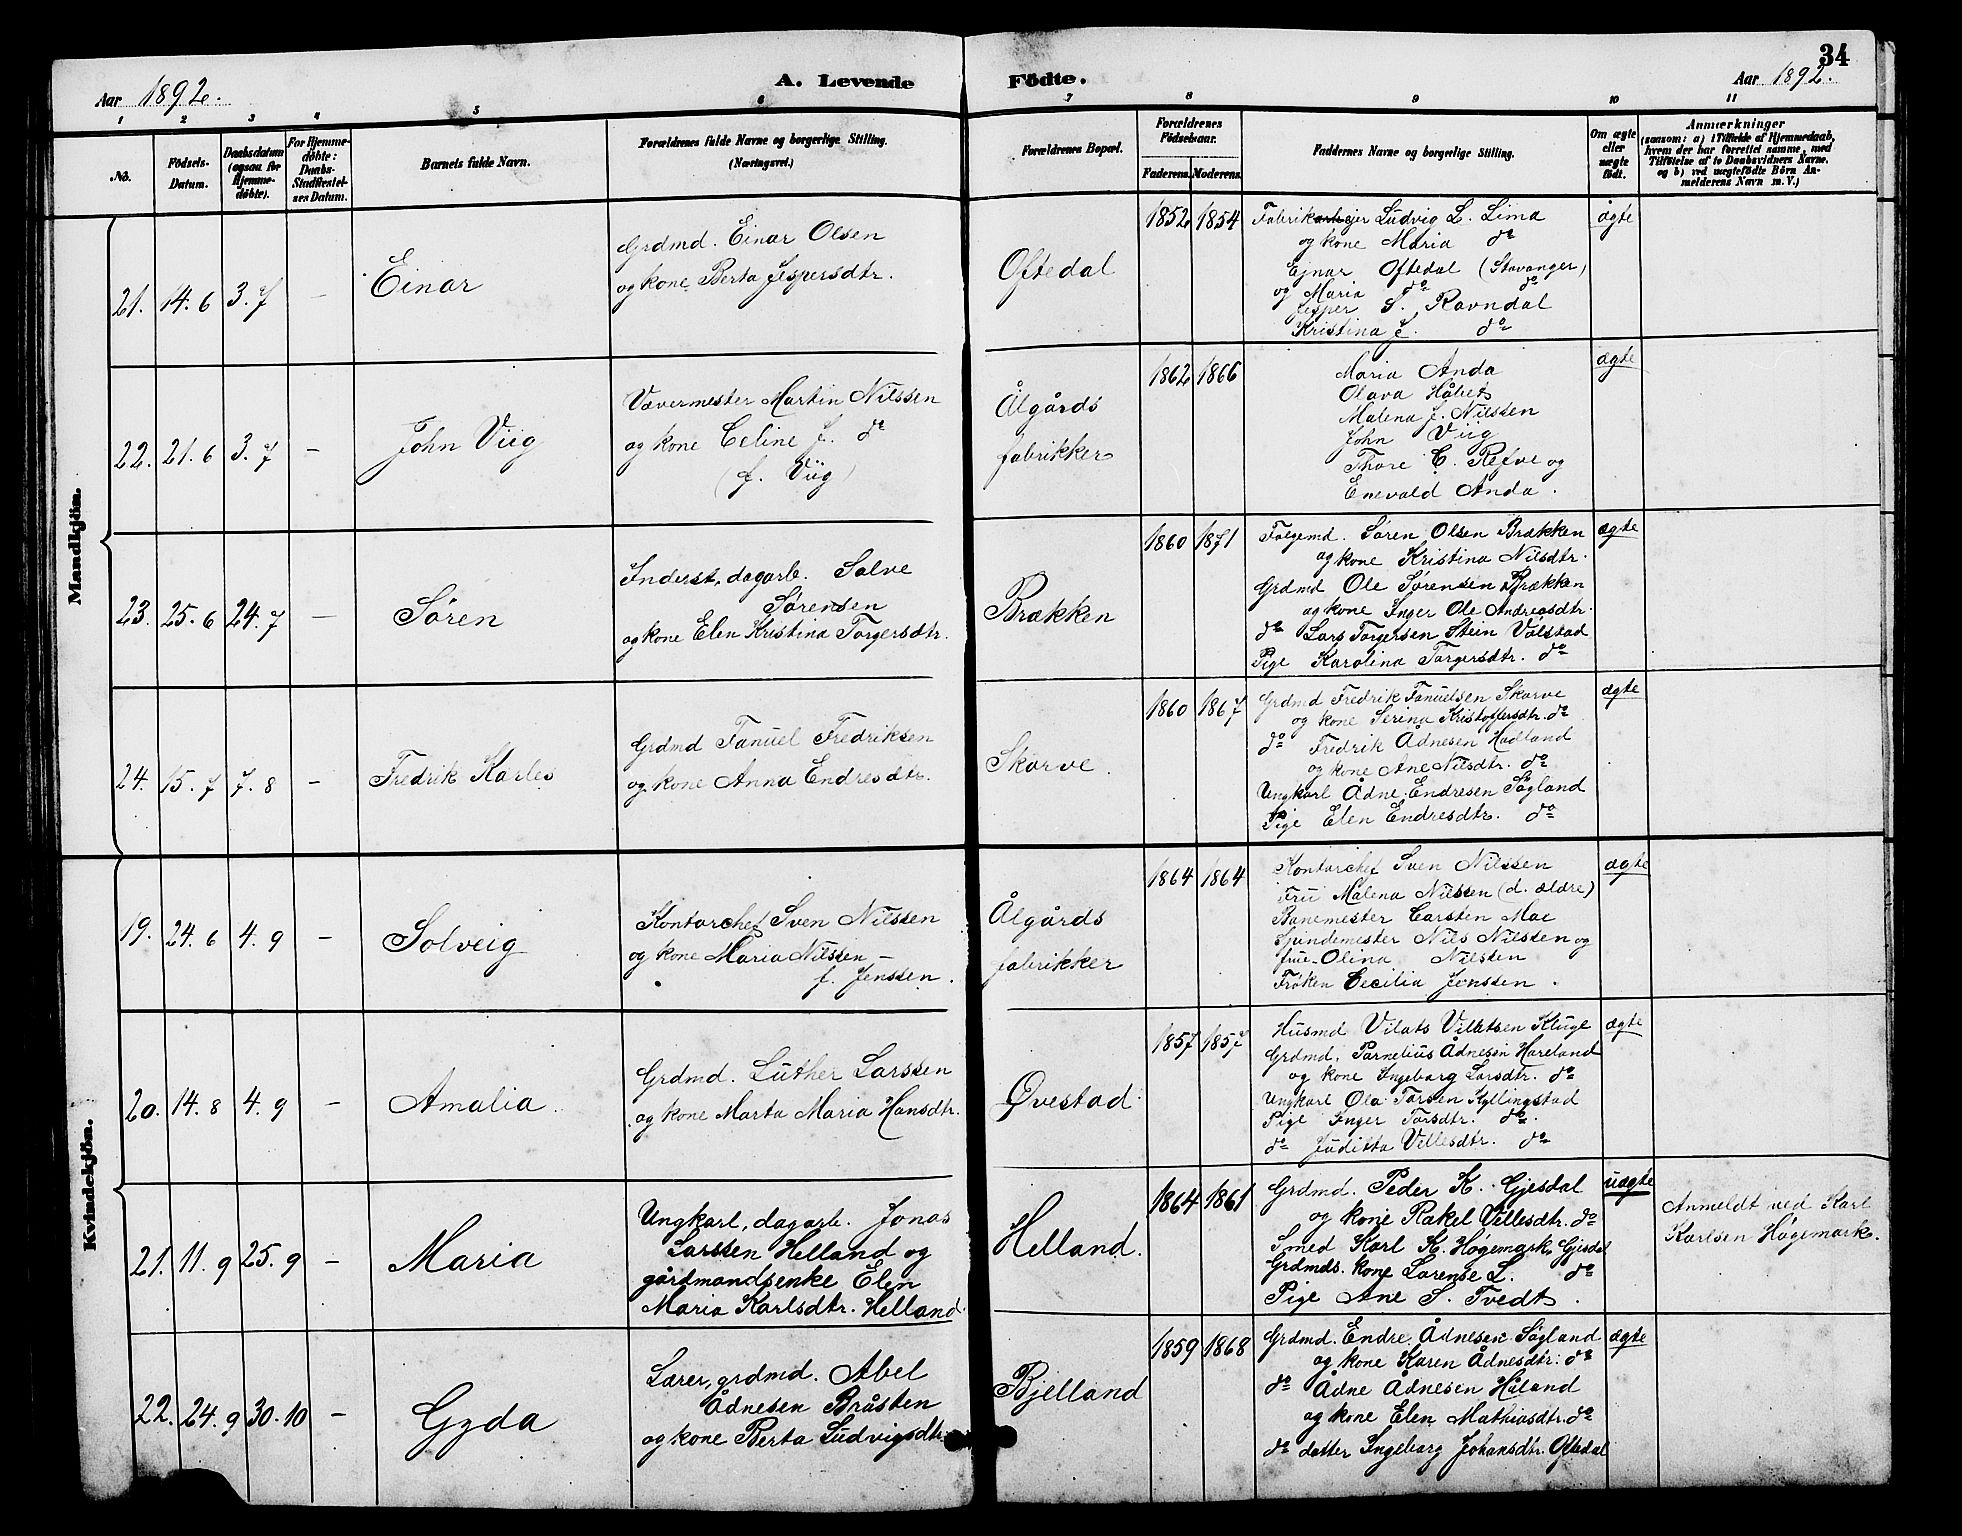 34
Aar 1892. A. Levende Födte. Aar 1892.
1 2 3 4 5 6 7 8 9 10 11
No. Födsels-Datum. Daabsdatum (ogsaa for Hjemme-døbte). For Hjemme-døbte: Daabs-Stadfæstel-ses Datum. Barnets fulde Navn. Forældrenes fulde Navne og borgerlige Stilling. (Næringsvei.) Forældrenes Bopæl. Forældrenes Födselsaar. Faderens. Moderens. Faddernes Navne og borgerlige Stilling. Om ægte eller uægte födt. Anmærkninger (saasom: a) i Tilfælde af Hjemmedaab, hvem der har forrettet samme, med Tilföielse af to Daabsvidners Navne, og b) ved uægtefödte Börn Anmelderens Navn m. V.)
Mandkjön.
21. 14.6 3.7 – Einar
Grdmd. Einar Olsen
og kone Berta Jespersdtr.
Oftedal
1852 1854
Fabrikejer Ludvig L. Lima
og kone Maria do
Ejnar Oftedal (Stavanger)
og Maria do do
Jesper S. Ravndal
Kristina J. do
ægte
22. 21.6 3.7 – John Viig
Vævermester Martin Nilssen
og kone Celine J. do
(f. Viig)
Ålgårds
fabrikker
1862 1866
Maria Anda
Olava Håbet
Malena J. Nilssen
John Viig
Thore C. Refve og
Enevald Anda.
ægte
23. 25.6 24.7 – Sören
Inderst, dagarb. Salve
Sørensen
og kone Elen Kristina Torgersdtr.
Brækken
1860 1871
Følgemd. Søren Olsen Brækken
og kone Kristina Nilsdtr.
Grdmd Ole Sørensen Brækken
og kone Inger Ole Andreasdtr.
do Lars Torgersen Stein Vølstad
Pige Karolina Torgersdtr. do
ægte
24. 15.7 7.8 – Fredrik Karles
Grdmd Tanuel Fredriksen
og kone Anna Endresdtr.
Skurve.
1860 1867
Grdmd Fredrik Tanuelsen Skurve
og kone Serina Kristoffersdtr. do
do Fredrik Ådnesen Hadland
og kone Ane Nilsdtr. do
Ungkarl Ådne Endresen Søgland
Pige Elen Endresdtr. do
ægte
Kvindekjön.
19. 24.6 4.9 – Solveig
Kontorchef Sven Nilssen
og kone Maria Nilssen –
f. Jenssen.
Ålgårds
fabrikker
1864 1864
Kontorchef Sven Nilssen
Fru Malena Nilssen (d. ældre)
Banemester Carsten Moe
Spindemester Nils Nilssen og
frue Olina Nilssen
Frøken Cecilia Jenssen.
ægte
20. 14.8 4.9 – Amalia
Grdmd. Luther Larssen
og kone Marta Maria Hansdtr.
Øvestad
1857 1857
Husmd Vilats Villatsen Kluge
Grdmd. Parnelius Ådnesen Hareland
og kone Ingeborg Larsdtr. do
Ungkarl Ola Tarsen Kyllingstad
Pige Inger Tarsdtr. do
do Juditta Villesdtr. do
ægte
21. 11.9 25.9 – Maria
Ungkarl, dagarb. Jonas
Larssen Helland og
gårdmandsenke Elen
Maria Karlsdtr. Helland
Helland.
1864 1861
Grdmd. Peder K. Gjesdal
og kone Rakel Villesdtr. do
Smed Karl K. Høgemark, Gjesdal
Grdmds. kone Larense L. do
Pige Ane S. Tvedt.
uægte
Anmeldt ved Karl
Karlsen Høgemark.
22. 24.9 30.10 – Gyda
Lærer, grdmd. Abel
Ådnesen Bråsten
og kone Berta Ludvigsdtr.
Bjelland
1859 1868
Grdmd. Endre Ådnesen Søgland
og kone Karen Ådnesdtr. do
do Ådne Ådnesen Håland
og kone Elen Mathiasdtr. do
do datter Ingeborg Johansdtr. Oftedal
ægte